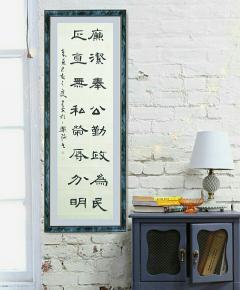 廉潔奉公勤政為民
正直無私榮辱分明